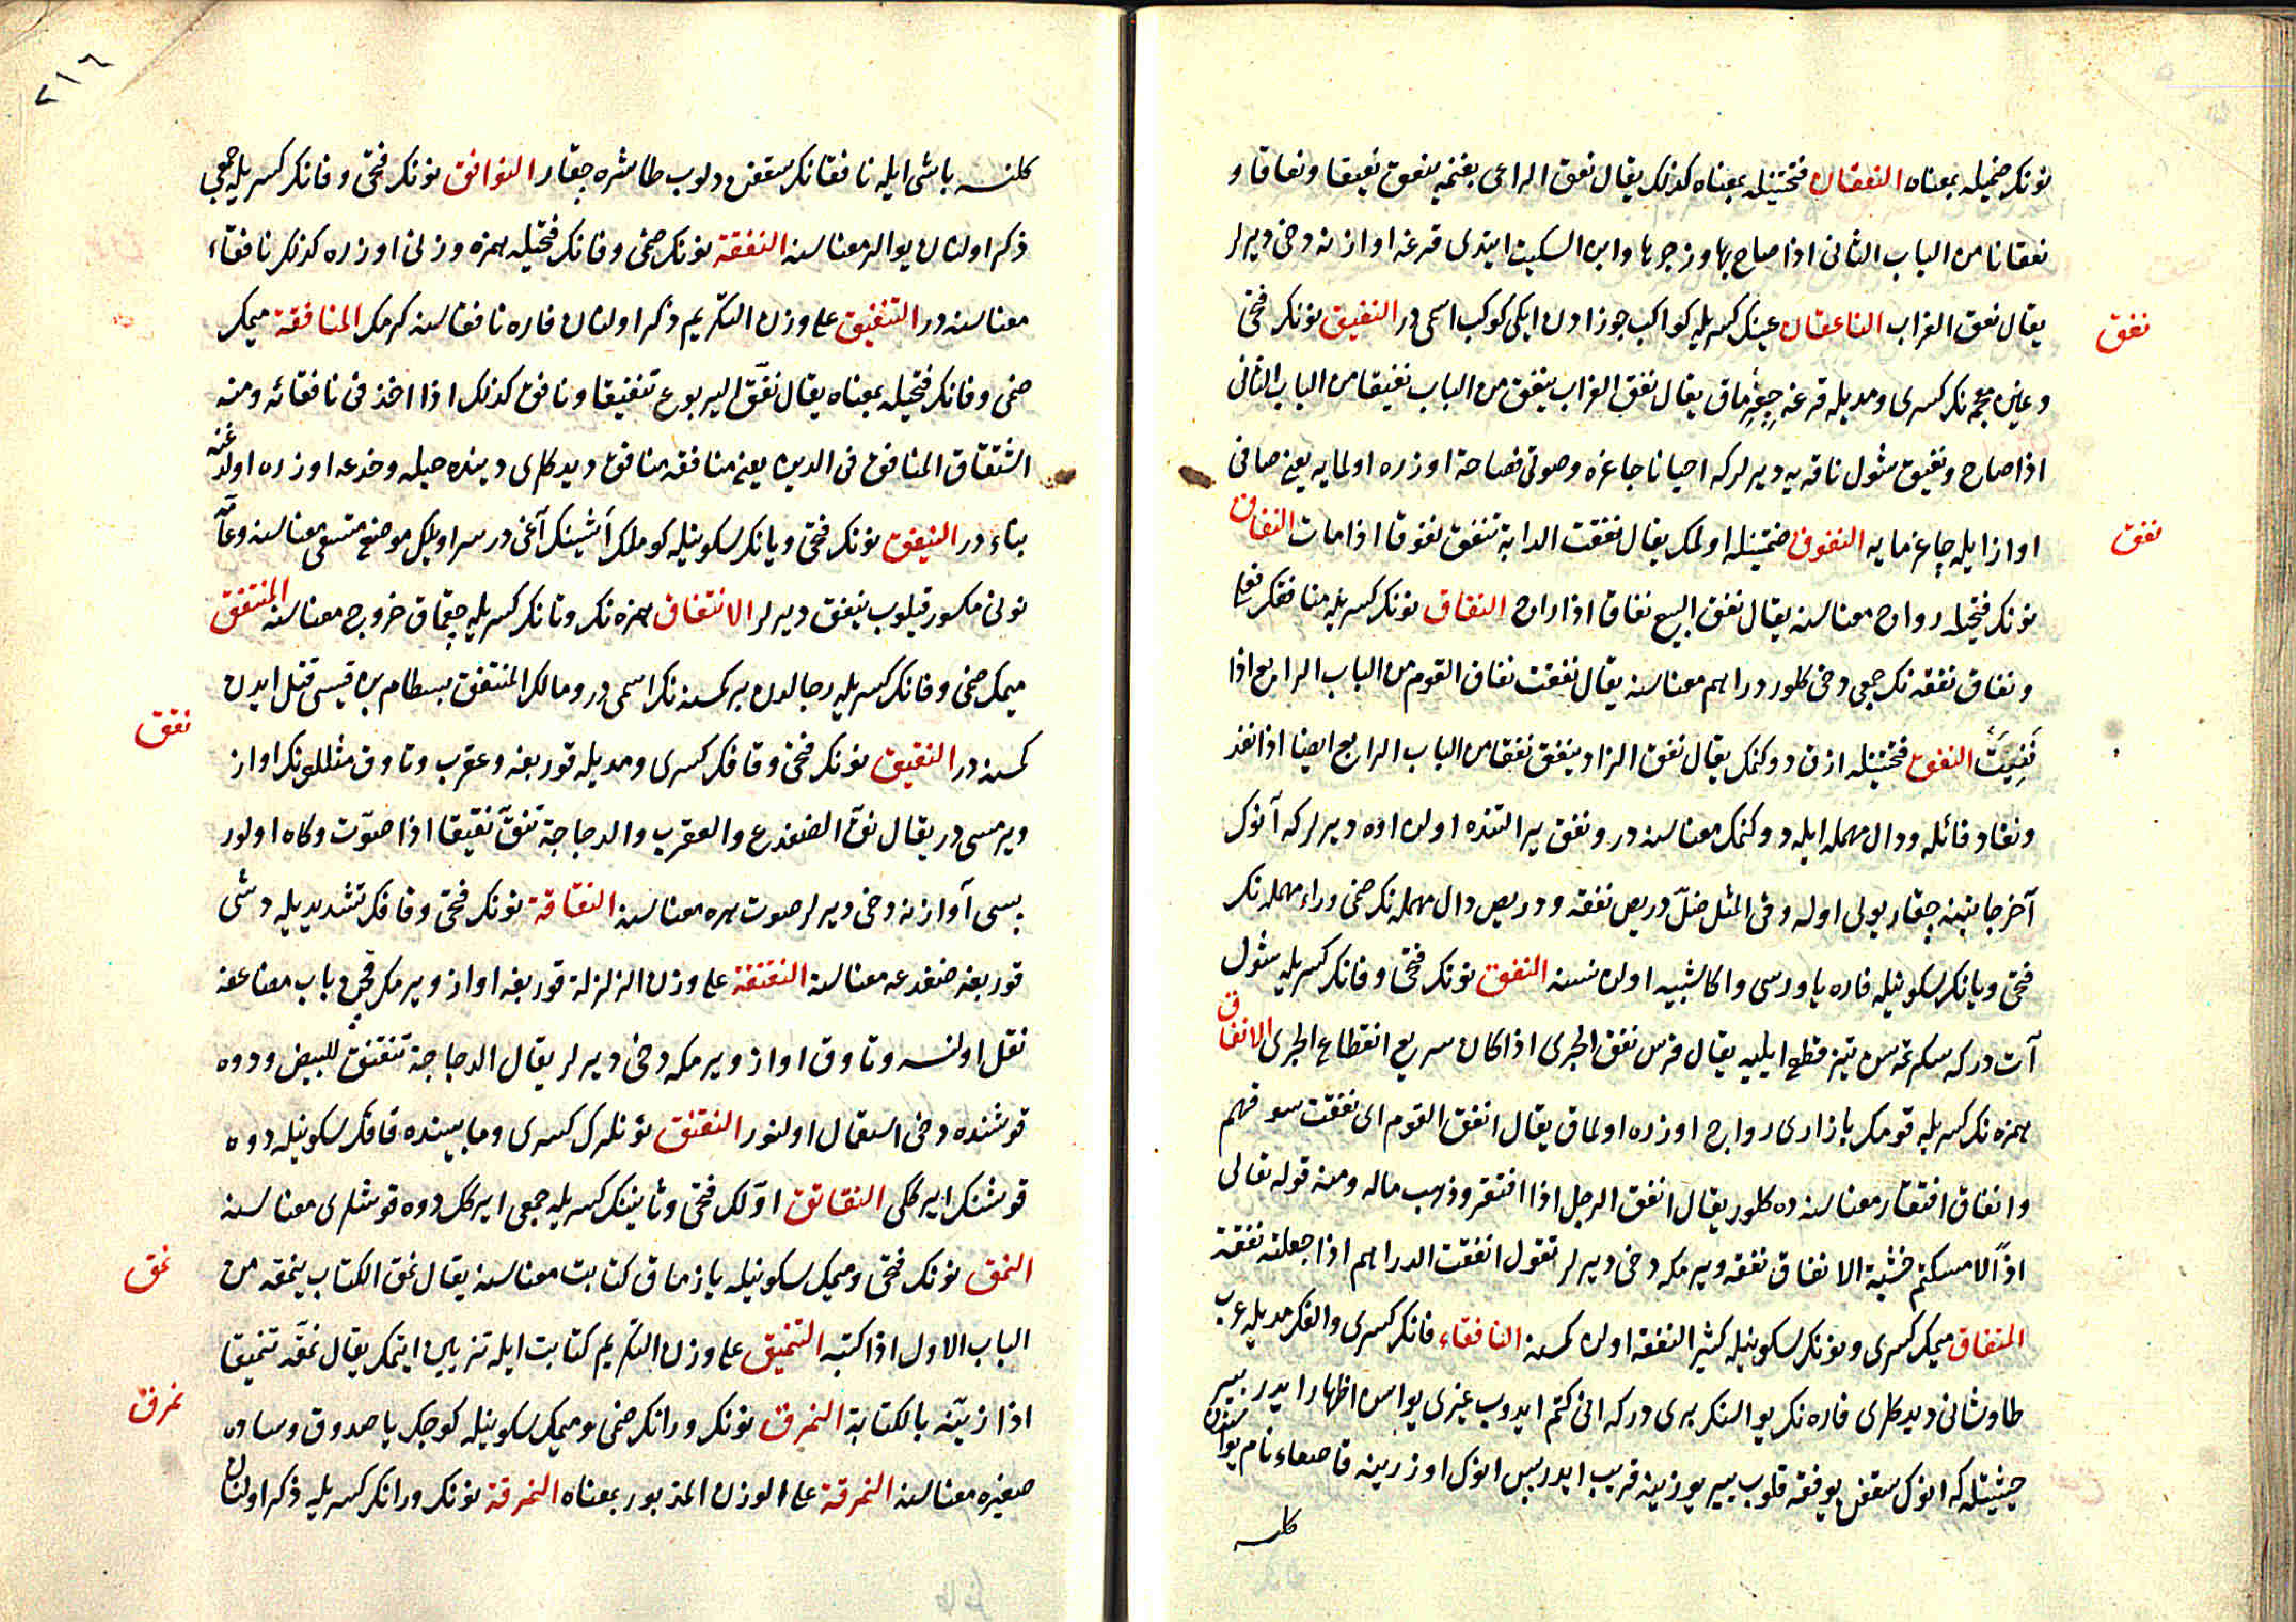 نونك ضميله بمعناه النعقان فتحتينله بمعناه كذلك يقال نعق الراعي بغنمه ينعق نعيقا ونعاقا و
نعقانا من الباب الثانى اذا صاح بها وزجرها وابن السكيت ايتدى قرغه اوازنه دخى ديرلر
يقال نعق الغراب الناعقان عينك كسريله كواكب جوزادن ايكى كوكب اسمى در النغيق نونك فتحى
نغق
وغين معجمه نك كسرى ومديله قرغه چغرماق يقال نغق الغراب ينغق من الباب نغيقا من الباب الثانى
اذا صاح ونغيق شول ناقه يه ديرلر كه احيانا چاغره وصوتى فصاحة اوزره اولمايه يعنى صافى
اواز ايله چاغرمايه النفوق ضمتينله اولمك يقال نفقت الدابة تنفق نفوقا اذا مات النفاق
نفق
نونك فتحيله رواج معناسنه يقال نفق البيع نفاقا اذا راج النفاق نونك كسريله منافقك فعلى
ونفاق نفقه نك جمعى دخى كلور دراهم معناسنه يقال نفقت نفاق القوم من الباب الرابع اذا
نفيت النفق فتحتينله ازق دوكنمك يقال نفق الزاد ينفق نفقا من الباب الرابع ايضا اذا نفذ
ونفاد فائله ودال مهمله ايله دوكنمك معناسنه در ونفق ير التنده اولن اوه ديرلر كه آنوك
آخر جانبنه چقار يولى اوله وفى المثل ضل دريص نفقه ودريص دال مهمله نك ضمى وراء مهمله نك
فتحى ويانك سكونيله فاره ياوروسى واكا شبيه اولن نسنه النفق نونك فتحى وفانك كسريله شول
آت در كه سكرتمسن تيز قطع ايليه يقال فرس نفق الجرى اذا كان سريع انقطاع الجرى الانفاق
همزه نك كسريله قومك بازارى رواج اوزره اولماق يقال انفق القوم اى نفقت سوقهم
وانفاق افتقار معناسنه ده كلور يقال انفق الرجل اذا افتقر وذهب ماله ومنه قوله تعالى
اذًا لامسكتم خشية الانفاق نفقه ويرمكه دخى ديرلر تقول انفقت الدراهم اذا جعلته نفقة
المنفاق ميمك كسرى ونونك سكونيله كثير النفقه اولن كمسنه النافقاء فانك كسرى والفك مديله عرب
طاوشانى ديدكلرى فاره نك يوالرينك برى در كه انى كتم ايدوب غيرى يواسن اظهار ايدر بير
حيثيتله كه انوك سقفن يوفقه قلوب يير يوزينه قريب ايدر پس انوك اوزرينه قاصعاء نام يواسندن
كلسه
٢١٦
كلنسه باشى ايله نافقانك سقفن دلوب طاشره چقار النوافق نونك فتحى وفانك كسريله جمعى
ذكر اولنان يوالر معناسنه النفقة نونك ضمى وفانك فتحيله همزه وزنى اوزره كذلك نافقاء
معناسنه در التنفيق على وزن التكريم ذكر اولنان فاره نافقاسنه كرمك المنافقة ميمك
ضمى وفانك فتحيله بمعناه يقال نفّق اليربوع تنفيقا ونافق كذلك اذا اخذ فى نافقائه ومنه
اشتقاق المنافق فى الدين يعنى منافقه منافق ديدكلرى دينده حيله وخدعه اوزره اولدغنه
بناء در النيفق نونك فتحى ويانك سكونيله كوملك اشينك آغى در سراويلك موضع متسعى معناسنه وعامّه
نونى مكسور قيلوب نيفق ديرلر الانتفاق همزه نك وتانك كسريله چقماق خروج معناسنه المنتفق
ميمك ضمى وفانك كسريله رجالدن بر كمسنه نك اسمى در ومالك المنتفق بسطام بن قيسى قتل ايدن
كمسنه در النقيق نونك فتحى وقافك كسرى ومديله قوربغه وعقرب وتاوق مثللونك اواز
نقق
ويرمسى در يقال نقّ الضفدع والعقرب والدجاجة تنقّ نقيقا اذا صوّت وكاه اولور
بسى آوازنه دخى ديرلر صوت هره معناسنه النقاقة نونك فتحى وقافك تشديديله دشى
قوربغه ضفدعه معناسنه النقنقة على وزن الزلزلة قوربغه اواز ويرمك قچن باب مضاعفه
نقل اولنسه وتاوق اواز ويرمكه دخى ديرلر يقال الدجاجة تنقنق للبيض ودوه
قوشنده دخى استعمال اولنور النقنق نونلرك كسرى ومابيننده قافك سكونيله دوه
قوشنك ايركگى النقانق اوّلك فتحى وثانينك كسريله جمعى ايركك دوه قوشلرى معناسنه
النمق نونك فتحى وميمك سكونيله يازماق كتابت معناسنه يقال نمق الكتاب ينمقه من
نمق
الباب الاول اذا كتبه التنميق على وزن التكريم كتابت ايله تزيين ايتمك يقال نمّقه تنميقا
اذا زيّنه بالكتابة النمرق نونك ورانك ضمى وميمك سكونيله كوچك ياصدوق وساده
نمرق
صغيره معناسنه النمرقة على الوزن المذبور بمعناه النمرقة نونك ورانك كسريله ذكر اولنان